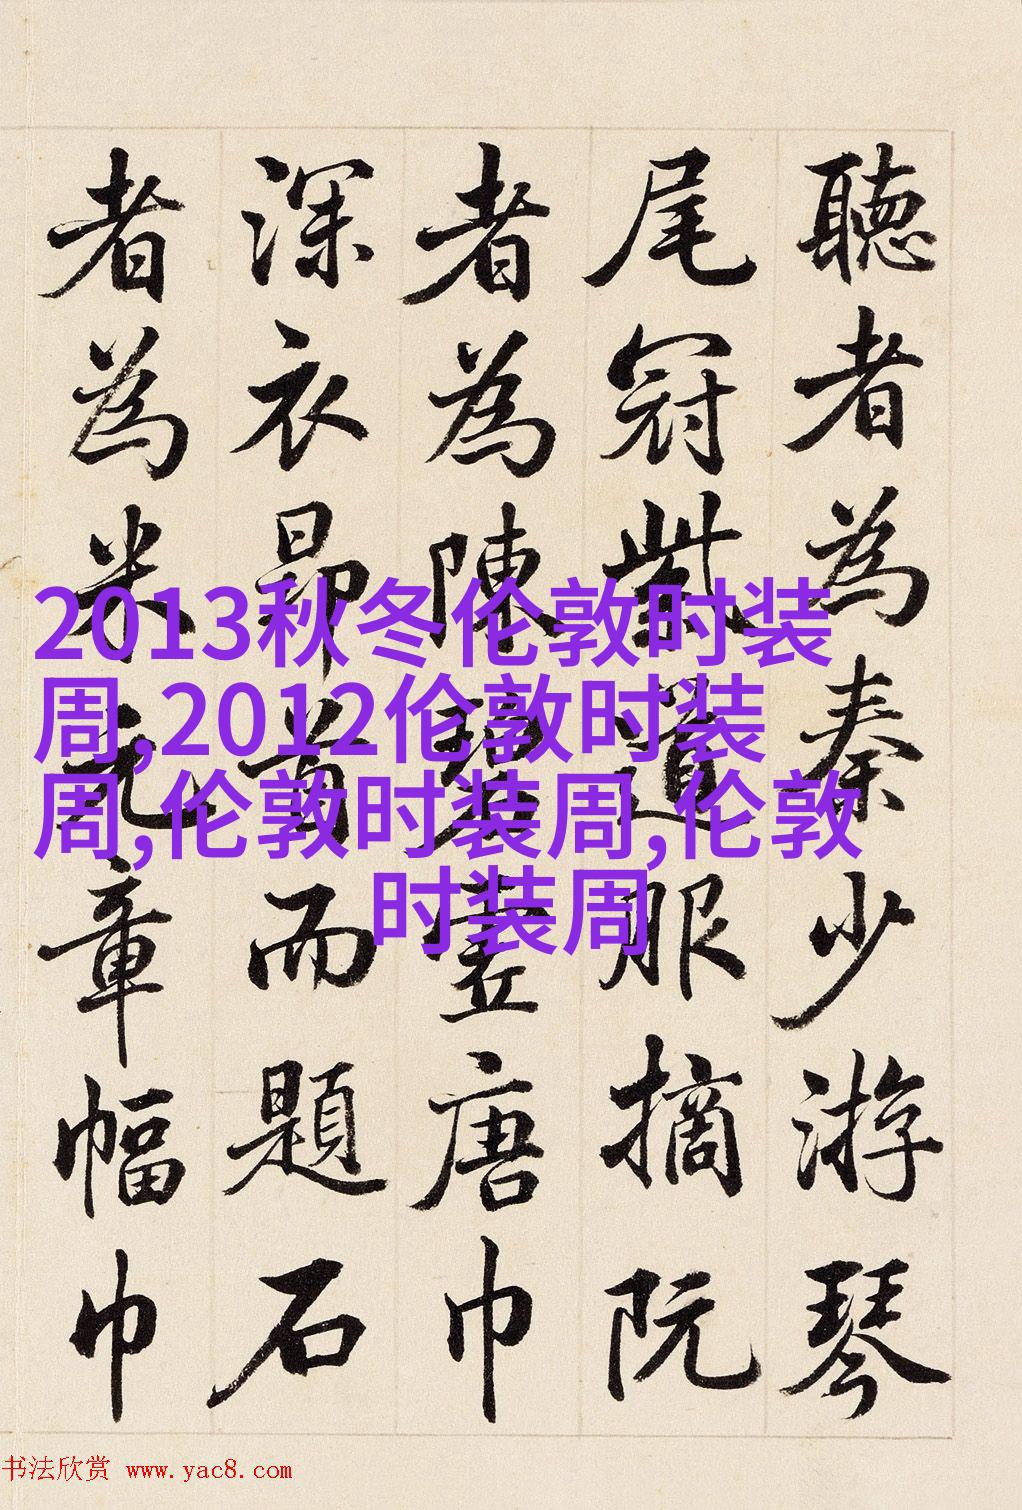 聽者為秦少游琴
尾冠紫道服摘阮
者為陳碧虛唐巾
深衣昂首而題石
者為米元章幅巾
2013秋冬伦敦时装
周,2012伦敦时装
周,伦敦时装周,伦敦
时装周
书法欣赏 www.yac8.com